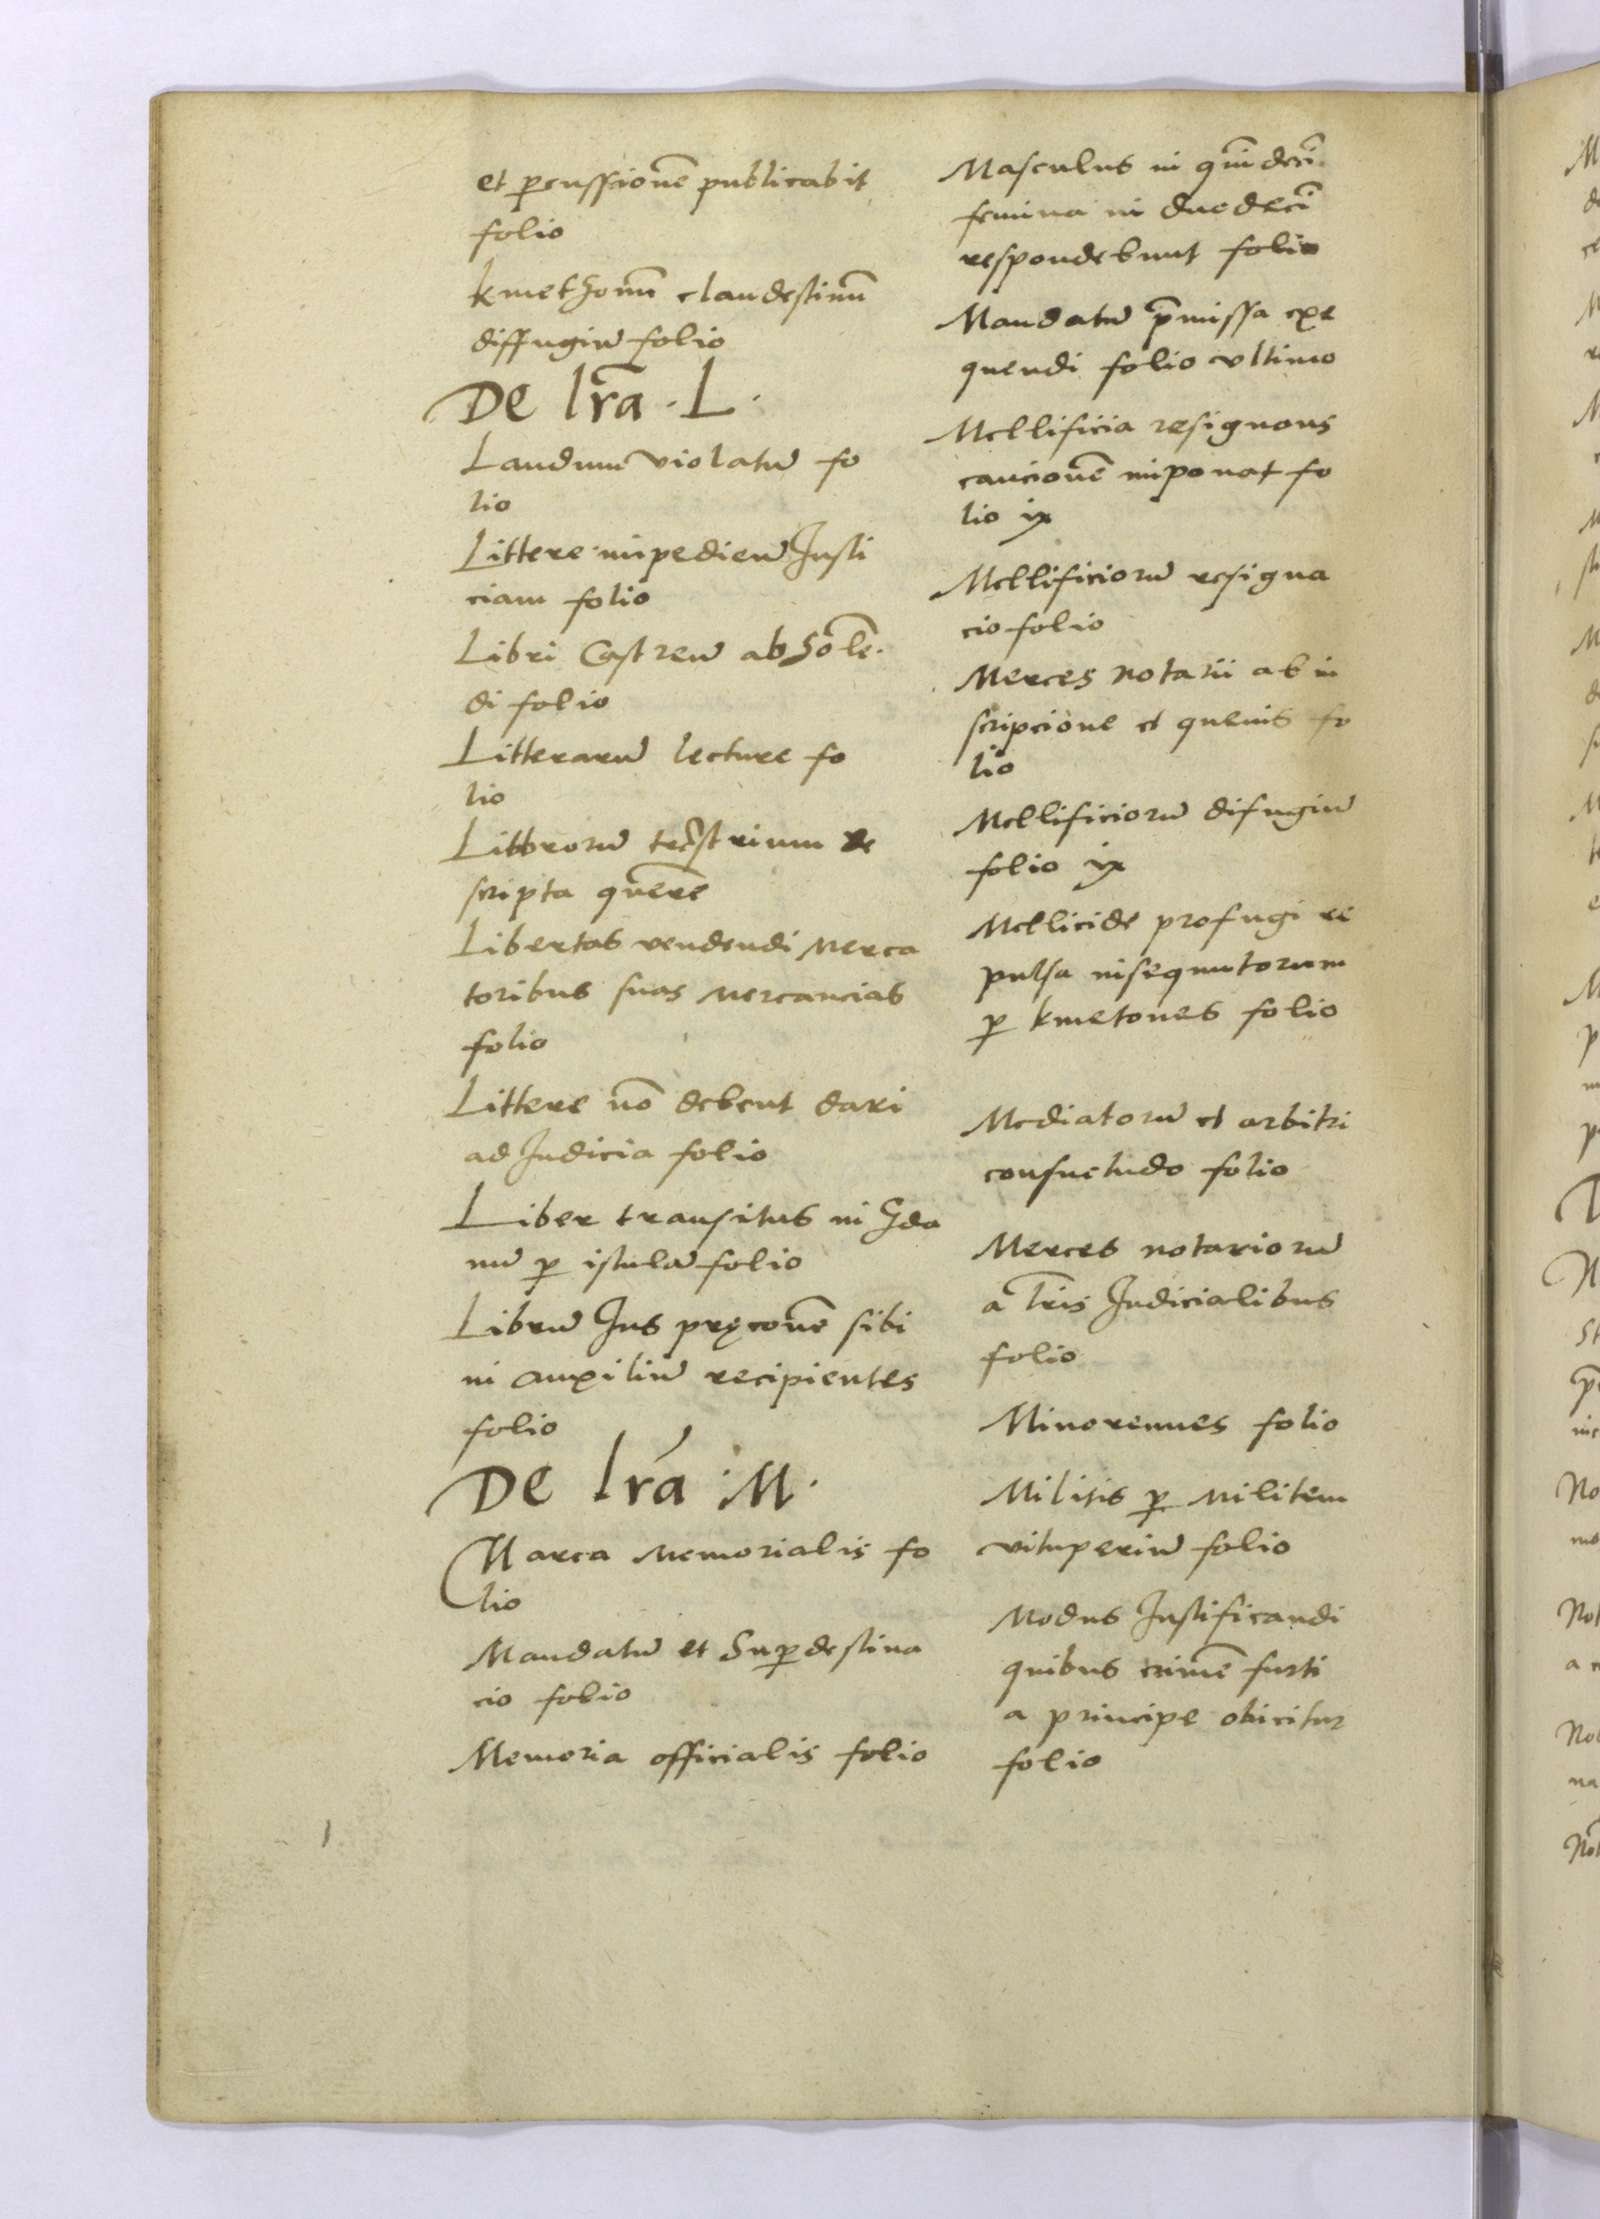 et ꝑcussionē publicabit
folio
kmethonū clandestinū
diffugiū folio
De lr̄a · L ·
Laudum violatū fo
lio
Littere impedien̄ Justi
ciam folio
Libri Castren̄ absolē
di folio
Litterarū lecture fo
lio
Librorū trēstrium de
scripta quere
Libertas vendendi Merca
toribus suas Mercancias
folio
Littere nō debent dari
ad Judicia folio
Liber transitus in Gda
nū ꝑ istulā folio
Librū Jus pręconē sibi
in auxiliū recipientes
folio
De lr̄a · M ·
Marca Memorialis fo
lio
Mandatū et Suꝑdestina
cio folio
Memoria officialis folio
Masculus in quīdeci
femina in duedecī
respondebunt folio
Mandatū p̄missa exe
quendi folio vltimo
Mellificia resignans
caucionē imponat fo
lio ix
Mellificiorū resigna
cio folio
Merces notarii ab in
scripcione et quevis fo
lio
Mellificiorū difugiū
folio ix
Mellicide profugi re
pulsa insequutorum
ꝑ kmetones folio
Mediatorū et arbitri
consuetudo folio
Merces notariorū
a lr̄is Judicialibus
folio
Minorennes folio
Militis ꝑ Militem
vituperiū folio
Modus Justificandi
quibus crimē furti
a principe obicitur
folio